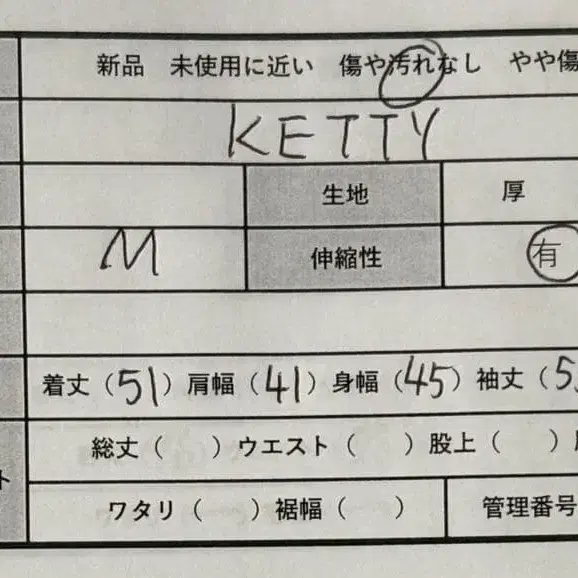 新品 未使用に近い 傷や汚れなし やや傷
KETTY
生地 厚
M 伸縮性 有
着丈（51）肩幅（41）身幅（45）袖丈（5
総丈（ ）ウエスト（ ）股上（ ）
ト
ワタリ（ ）裾幅（ ） 管理番号